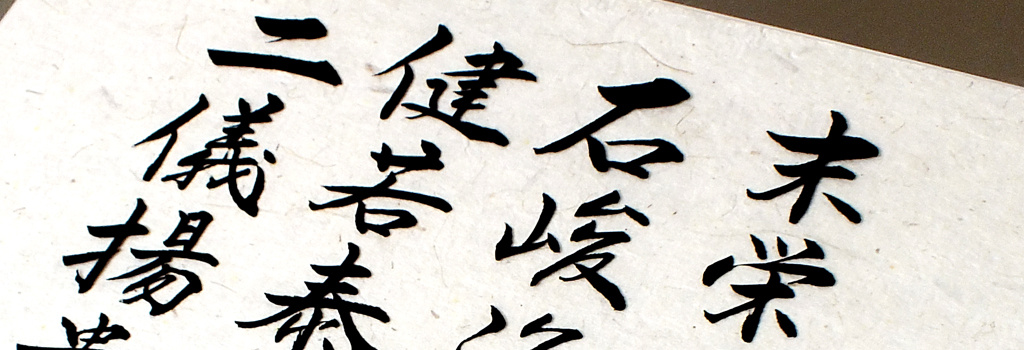 未栄
石峻
健若泰
二儀揚